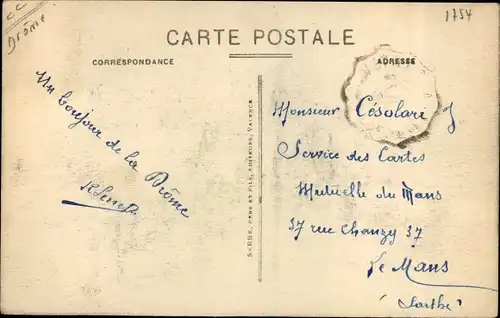 CC
Drôme
1754
CARTE POSTALE
CORRESPONDANCE
ADRESSE
Un bonjour de la Drôme
SERRE, PERE ET FILS, EDITEURS, VALENCE
Monsieur Césolari J
Service des Cartes
Mutuelle du Mans
37 rue Chanzy 37
Le Mans
(Sarthe)